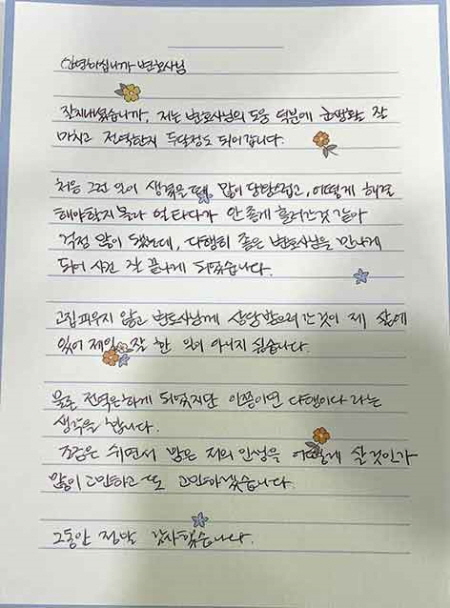 안녕하십니까 변호사님
잘지내셨습니까, 저는 변호사님의 도움 덕분에 군생활 잘
마치고 전역한지 두달정도 되어갑니다.
처음 그런 일이 생겼을 때, 많이 당황스럽고, 어떻게 해결
해야할지 몰라 얼타다가 안 좋게 흘러간것 같아
걱정 많이 했는데, 다행히 좋은 변호사님을 만나게
되어 사건 잘 끝나게 되었습니다.
고집피우지 않고 변호사님께 상담 받으러 간것이 제 삶에
있어 제일 잘 한 일이 아닌지 싶습니다.
물론 전역은하게 되었지만 이쯤이면 다행이다 라는
생각을 합니다.
조금은 쉬면서 남은 저의 인생을 어떻게 살것인가
많이 고민하고 또 고민하겠습니다.
그동안 정말 감사했습니다.